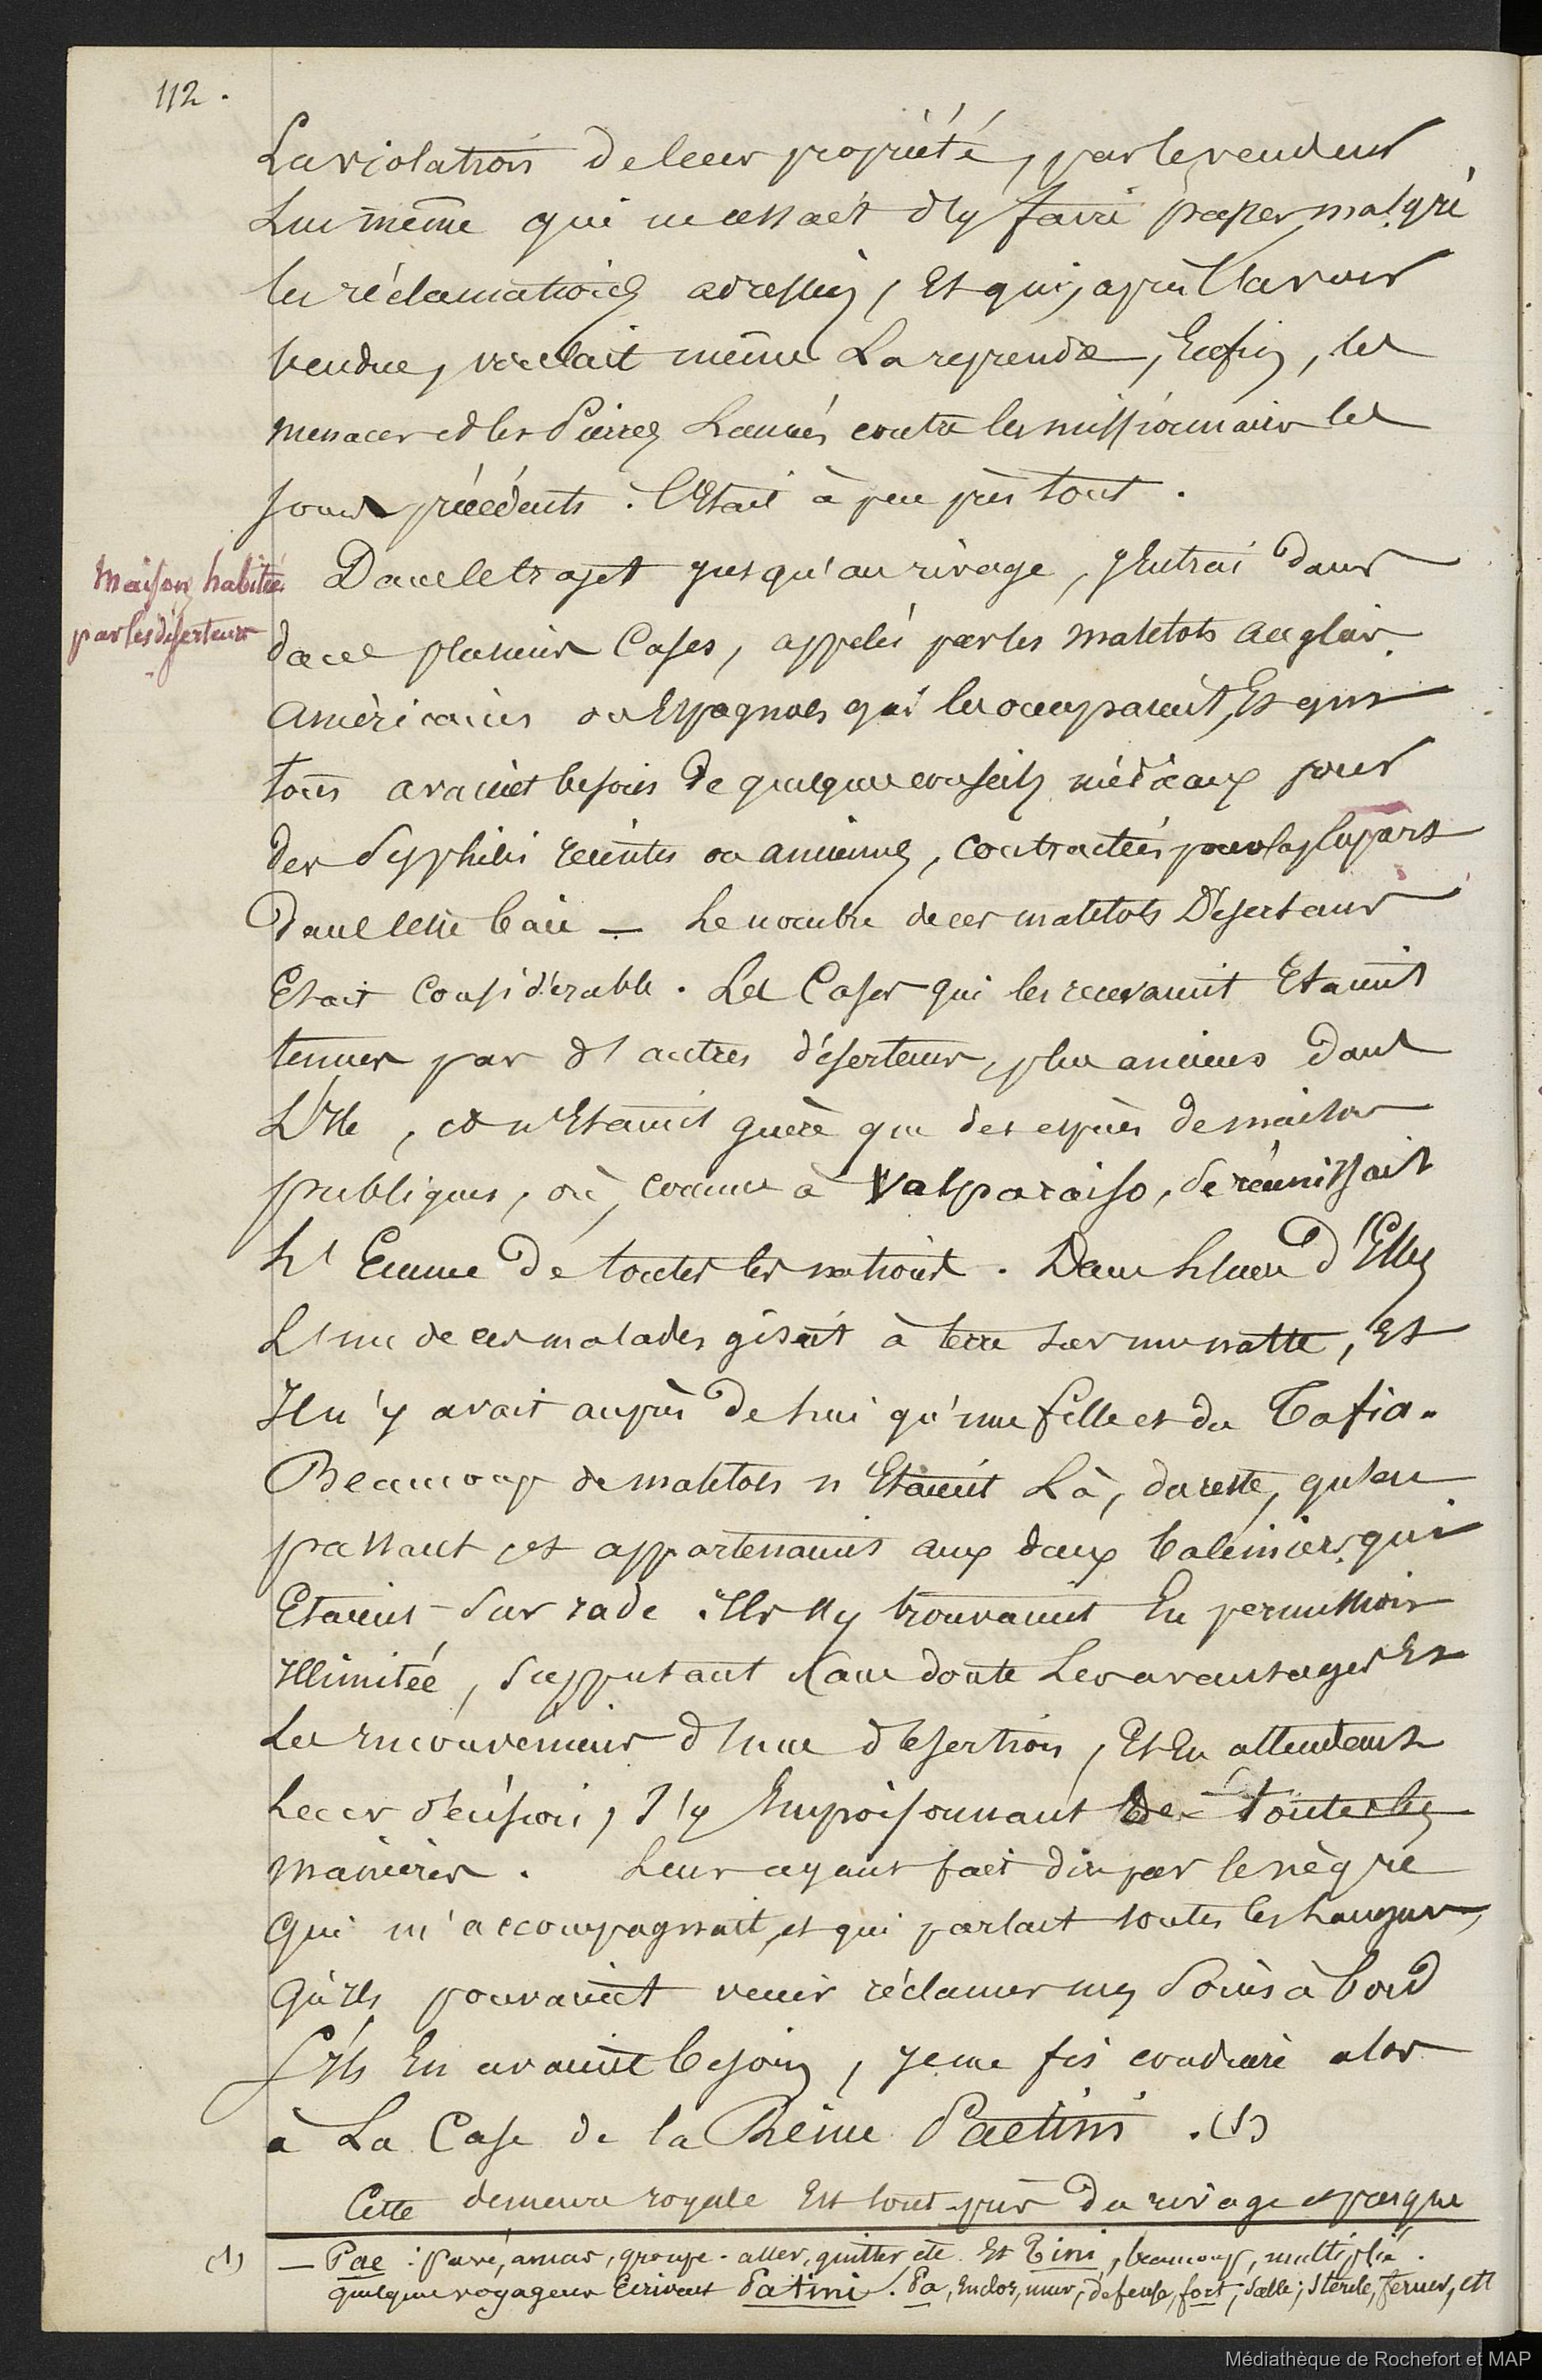 112.
La violation de leur propriété, par le vendeur
Lui même qui ne cessait d'y faire passer malgré
les réclamations adressées, Et qui, après l'avoir
vendue, voulait même La reprendre, Enfin, les
menaces et les Pierres Lancées contre les missionnaires les
jours précédents. C'Etait à peu près tout.
Maison habitée
par les déserteurs
Dans le trajet jusqu'au rivage, j'Entrai dans
dans plusieurs Cases, appelé par les matelots anglais
américains ou Espagnols qui les occupaient, Et qui
tous avaient besoin de quelques conseils médicaux pour
des Syphilis récentes ou anciennes, contractées pour la plupart
dans cette baie — Le nombre de ces matelots Déserteurs
Etait Considérable. Les Cases qui les recevaient Etaient
tenues par d'autres déserteurs, plus anciens dans
L'Ile, et n'Etaient guère que des espèces de maisons
publiques, où, comme à Valparaiso, se réunissait
L'Ecume de toutes les nations. Dans L'une d'Elles
L'un de ces malades gisait à terre sur une natte, Et
Il n'y avait auprès de Lui qu'une fille et du Tafia.
Beaucoup de matelots n'Etaient Là, du reste, qu'en
passant et appartenaient aux deux baleiniers qui
Etaient sur rade. Ils s'y trouvaient En permission
Illimitée, supputant sans doute Les avantages Et
Les Inconvénients d'une désertion, Et En attendant
Leur décision, s'y Empoisonnant de toutes les
manières. Leur ayant fait dire par le nègre
qui m'accompagnait, et qui parlait toutes les Langues,
qu'Ils pouvaient venir réclamer mes Soins à bord
S'Ils En avaient besoin, je me fis conduire alors
à La Case de la Reine Paetini. (1)
Cette demeure royale Est tout près du rivage et presque
(1) — Pae : paré, amas, groupe - aller, quitter etc. Et Tini, beaucoup, multiplié.
quelques voyageurs Ecrivent Patini. Pa, Enclos, mur, défense, fort; salle; stérile, fermer, etc
Médiathèque de Rochefort et MAP